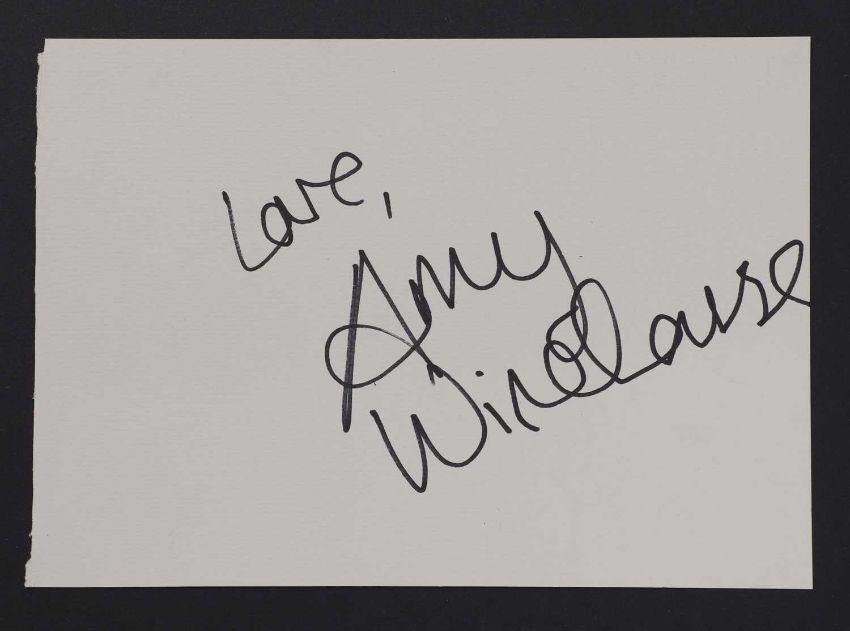 Love,
Amy
Winehouse